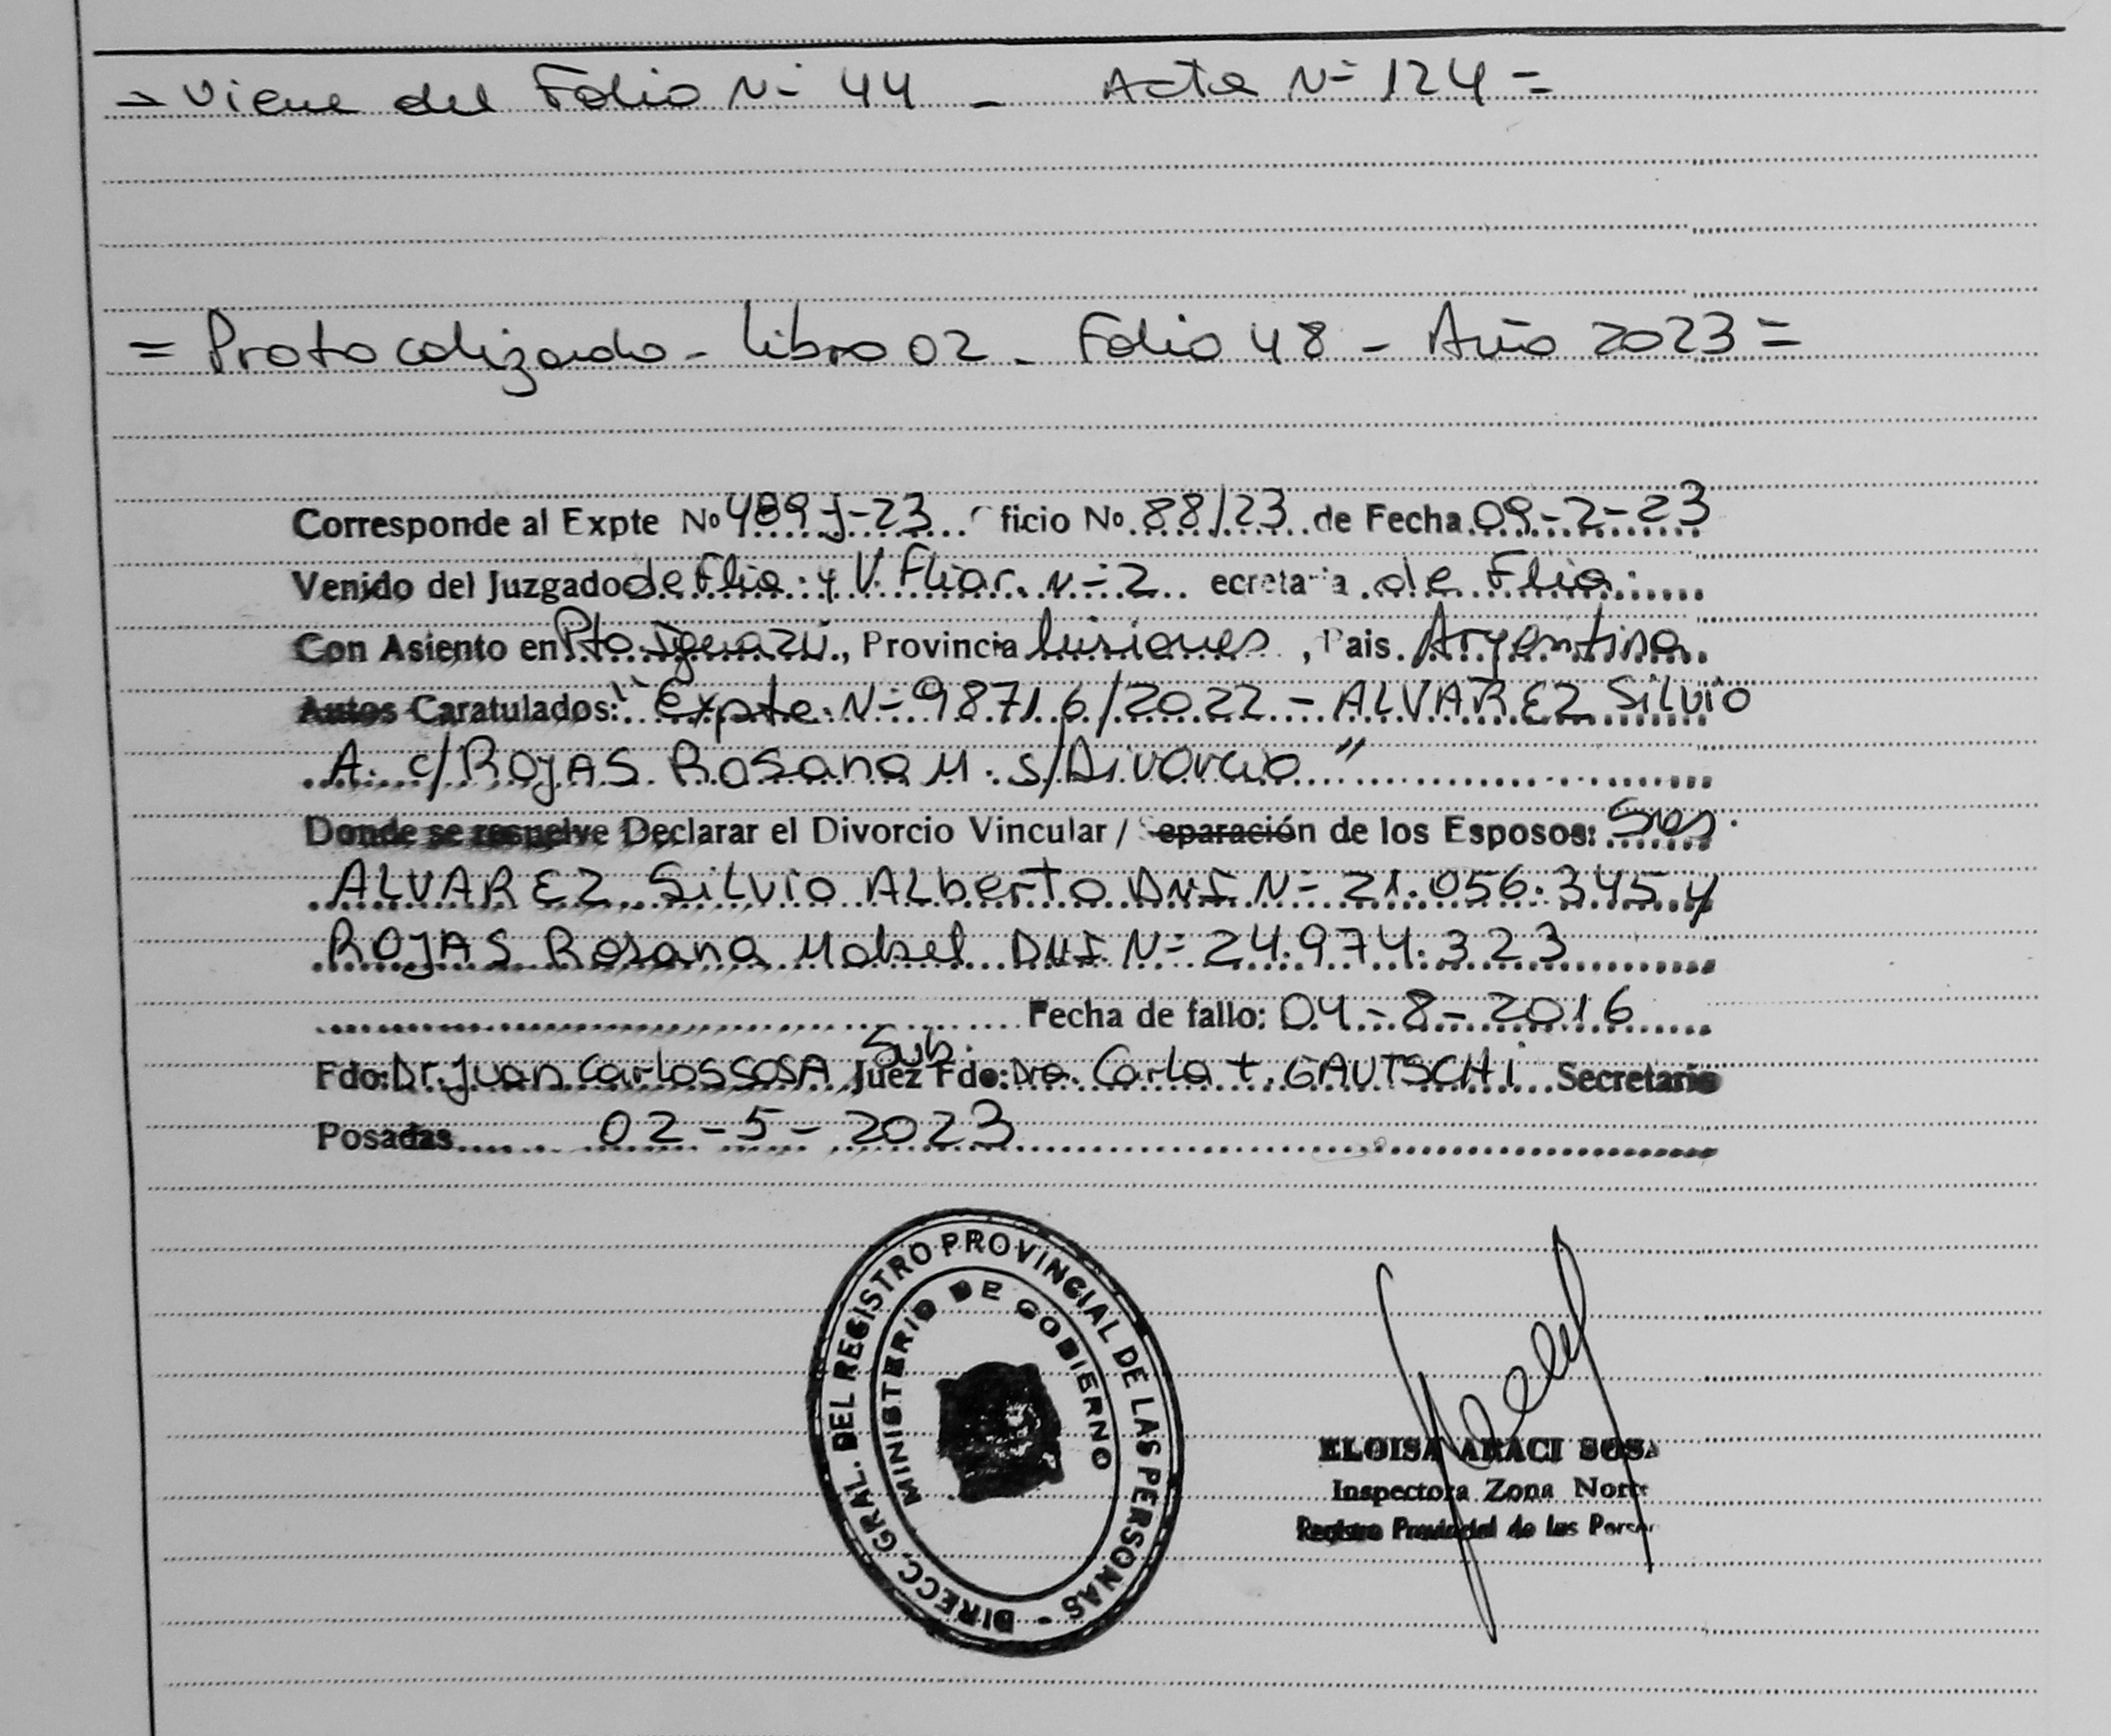 = Viene del Folio Nº 44 - Acta Nº 124 =
= Protocolizado - Libro 02 - Folio 48 - Año 2023 =
Corresponde al Expte Nº 489-J-23 ficio Nº 88/23 de Fecha 09-2-23
Venido del Juzgado de Flia. y V. Fliar. Nº 2 ecretaria de Flia.
Con Asiento en Pto. Iguazú, Provincia Misiones, Pais Argentina
Autos Caratulados: "Expte. Nº 98716/2022 - ALVAREZ Silvio
A. c/ ROJAS Rosana M. s/Divorcio"
Donde se resuelve Declarar el Divorcio Vincular / Separación de los Esposos: Sres.
ALVAREZ Silvio Alberto DNI Nº 21.056.345 y
ROJAS Rosana Mabel DNI Nº 24.974.323
Fecha de fallo: 04-8-2016
Fdo: Dr. Juan Carlos SOSA Juez Sub. Fdo: Dra. Carla t. GAUTSCHI Secretaria
Posadas 02-5-2023
DIRECC. GRAL. DEL REGISTRO PROVINCIAL DE LAS PERSONAS -
MINISTERIO DE GOBIERNO
ELOISA ARACI SOSA
Inspectora Zona Norte
Registro Provincial de las Person